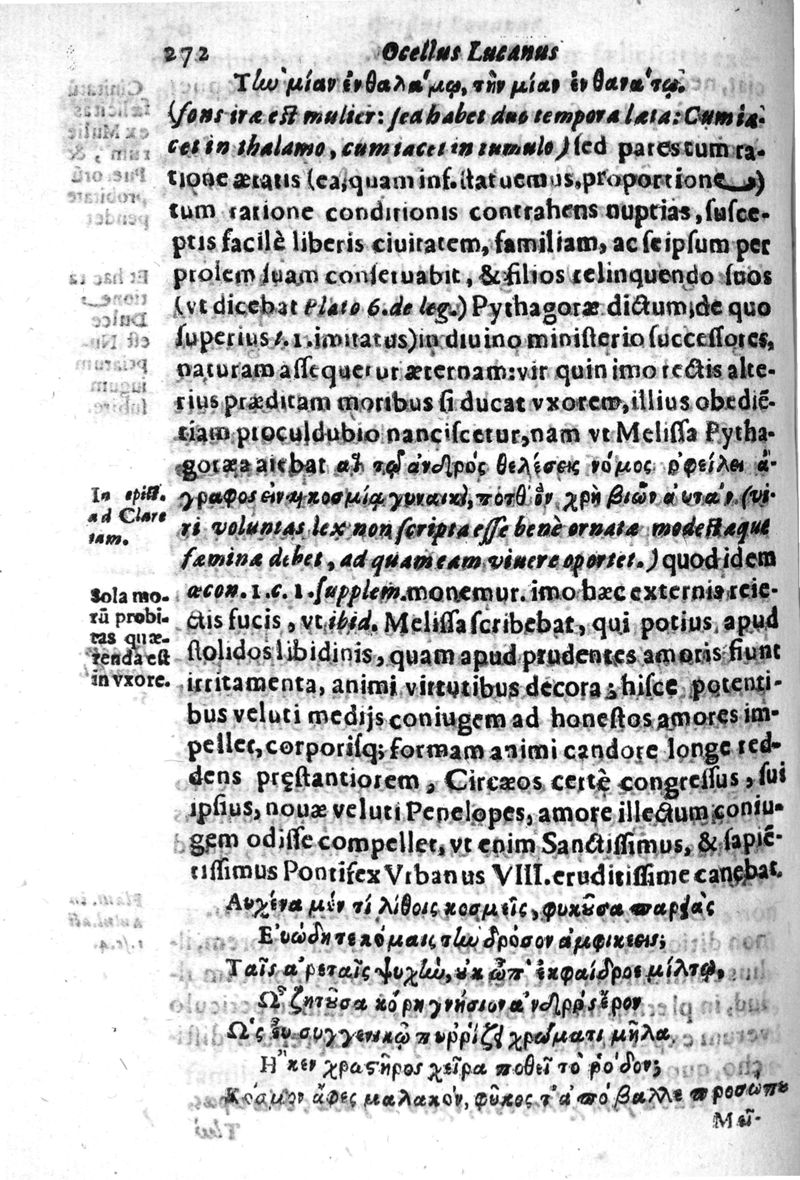 272 Ocellus Lucanus
Τὼ μίαν ἐν θαλάμῳ, τὴν μίαν ἐν θανάτῳ.
(fons iræ est mulier: sed habet duo tempora lata: Cum ia-
cet in thalamo, cum iacet in tumulo) sed pares cum ra-
tione ætatis (ea, quam inf. statuemus, proportione)
tum ratione conditionis contrahens nuptias, susce-
ptis facilè liberis ciuitatem, familiam, ac se ipsum per
prolem suam conseruabit, & filios relinquendo suos
(vt dicebat Plato 6. de leg.) Pythagoræ dictum, de quo
superius t. 1. imitatus) in diuino ministerio successores,
naturam assequetur æternam: vir quin imo rectis alte-
rius præditam moribus si ducat vxorem, illius obediē-
tiam proculdubio nanciscetur, nam vt Melissa Pytha-
goræa aiebat αἱ τῶ ἀνδρός θελέσεις νόμος ὀφείλει ἄ-
γραφος εἶναι κοσμίᾳ γυναικὶ, ποτθ᾽ ὃν χρὴ βιῶν ἀυτάν. (vi-
ri voluntas lex non scripta esse benè ornatæ modestæque
fæminæ debet, ad quam eam viuere oportet.) quod idem
æcon. 1. c. 1. supplem. monemur. imo hæc externis reie-
ctis fucis, vt ibid. Melissa scribebat, qui potius apud
stolidos libidinis, quam apud prudentes amoris fiunt
irritamenta, animi virtutibus decora; hisce potenti-
bus veluti medijs coniugem ad honestos amores im-
pellet, corporisq; formam animi candore longe red-
dens pręstantiorem, Circæos certè congressus, sui
ipsius, nouæ veluti Penelopes, amore illectum coniu-
gem odisse compellet, vt enim Sanctissimus, & sapiē-
tissimus Pontifex Vrbanus VIII. eruditissime canebat.
Αυχένα μέν τί λίθοις κοσμεῖς, φυκοῦσα παρειὰς
Ευώδη τε κόμαις τὼ δρόσον ἀμφικεεις;
Ταῖς ἀρεταῖς ψυχὼ, οὐκ ὦπ᾽ ἐκφαίδροε μίλτῳ,
Ὦ ζητοῦσα κόρη γνήσιον ἀνδρὸς ἔρον
Ὡς ἐν συγγενικῷ πυρρίζει χρώματι μῆλα
Ἤ κεν χρωστῆρος χεῖρα ποθεῖ τὸ ῥόδον;
Κόσμον ἄφες μαλακόν, φῦκος τ᾽ ἀπόβαλλε προσώπου
Μεῖ-
In epist.
ad Clare
tam.
Sola mo-
rū probi-
tas quæ-
renda est
in vxore.